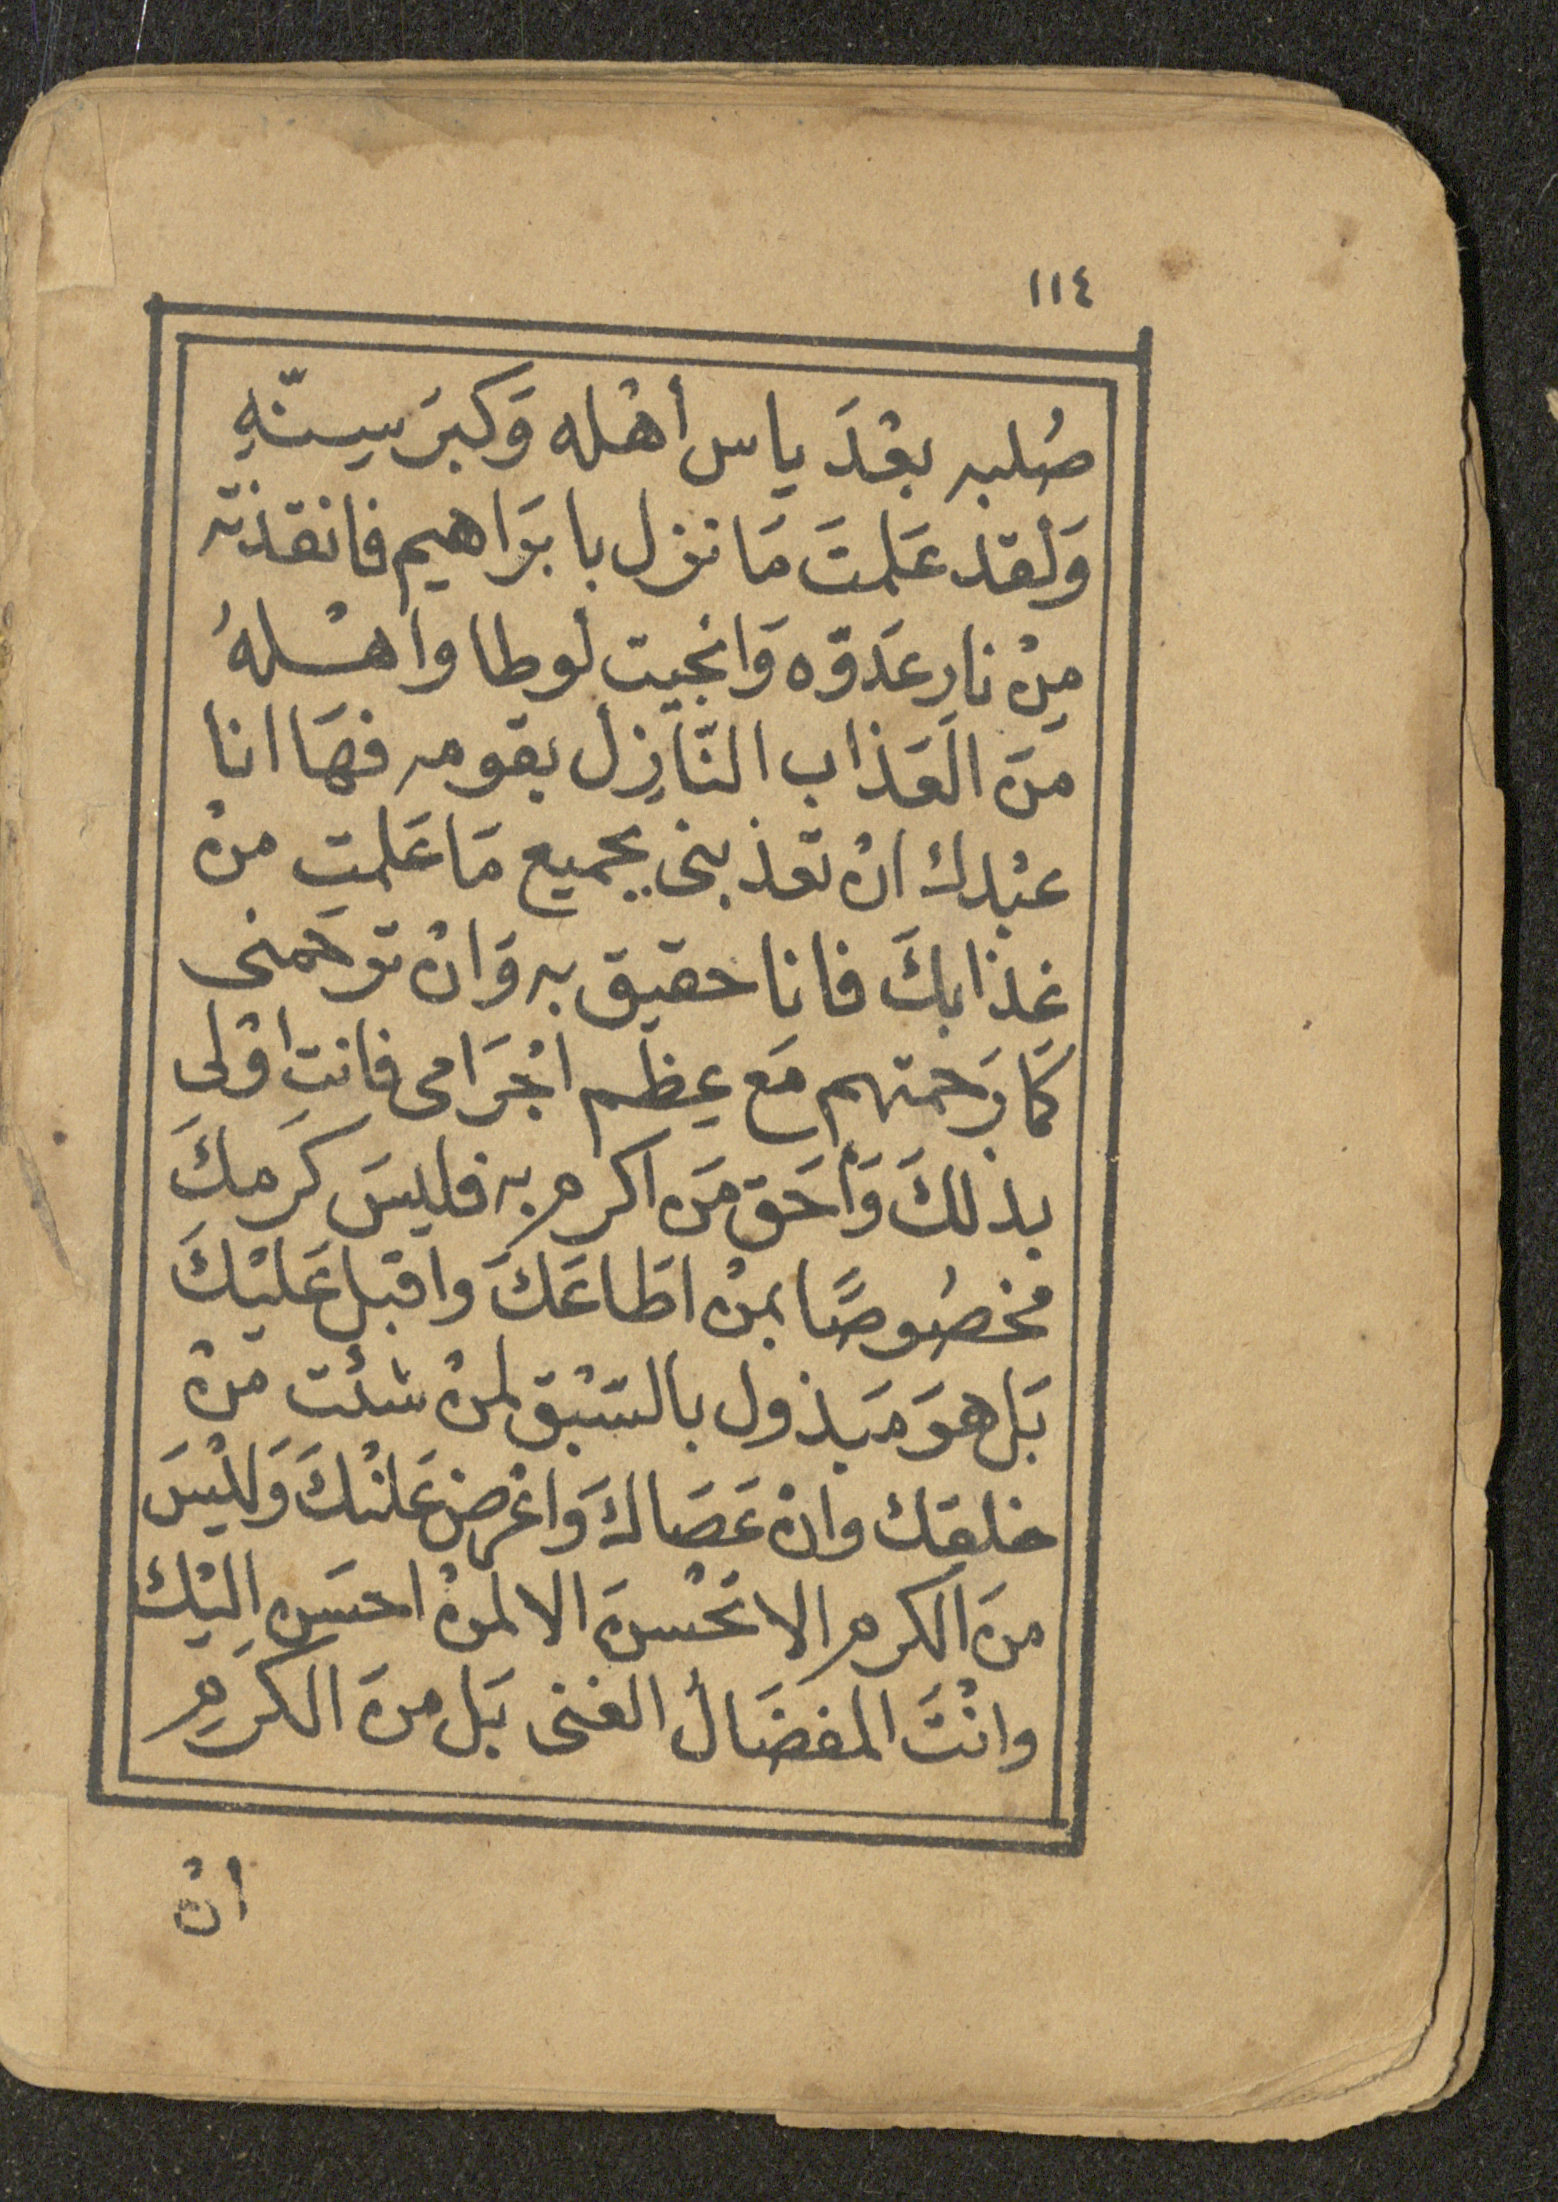 ١١٤
صُلبه بعْدَ ياس أهْله وَكبَر سِنّهِ
وَلَقد عَلمتَ مَا نزل بابرَاهيم فانقذته
مِنْ نارِ عَدوّه وَانجيت لوطا واهْلهُ
مِنَ العَذاب النَّازِل بقومه فهَا انا
عبْدك انْ تعذبنى بجميع مَا عَلمتِ منْ
عَذابكَ فانا حقيق به وَانْ ترحَمنى
كَما رَحمتهم مَع عِظَم اجْرَامى فانت اوْلى
بذلكَ وَأحَق مَن اكرم به فليسَ كَرَمكَ
مخصُوصًا بمنْ اطَاعَكَ واقبل عَليْكَ
بَل هوَ مَبذول بالسَّبْق لمنْ شئت منْ
خلقك وانْ عَصَاكَ وَاعْرض عَلنْكَ وَليْسَ
منَ الكرم الا تحْسنَ الا لمنْ احسَن اليْك
وانْتَ المفضَالُ الغنى بَل منَ الكرَمِ
انْ